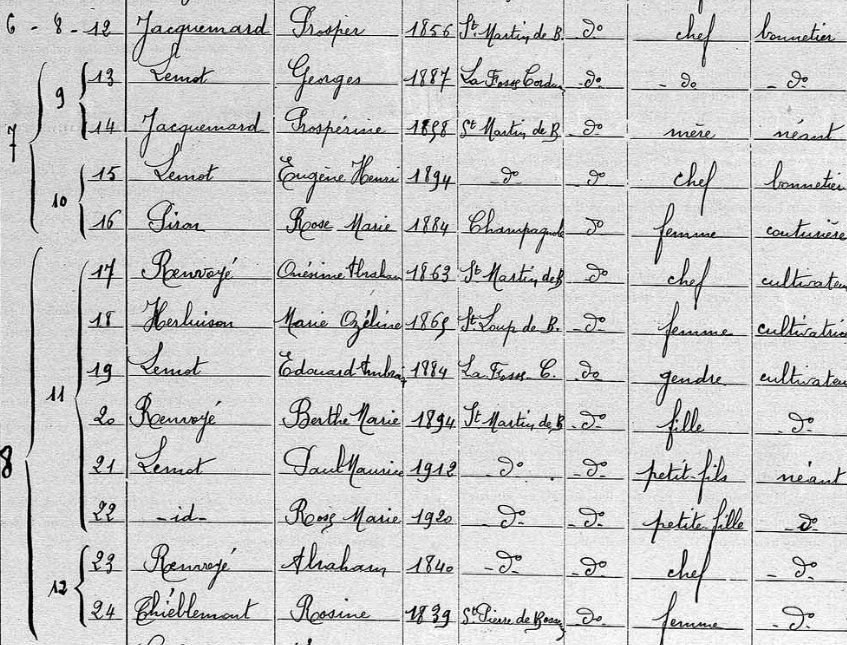 6 - 8 - 12 Jacquemard Prosper 1856 St Martin de B. do chef bonnetier
13 Lemot Georges 1887 La Fosse Cordu do - do - do
9
14 Jacquemard Prospérine St Martin de B do mère néant
7
15 Lemot Eugène Henri 1894 do do chef bonnetier
10
16 Rose Marie 1884 Champagnole do femme couturière
17 Renvoyé Onésime Abraham 1863 St Martin de B do chef cultivateur
18 Herluison Marie Ozéline St Loup de B. do femme cultivatrice
19 Lemot Edouard 1884 La Fosse C. do gendre cultivateur
11
20 Renvoyé Berthe Marie 1894 St Martin de B do fille do
8
21 Lemot Paul Maurice 1912 do do petit-fils néant
22 - id - Rose Marie 1920 do do petite-fille do
23 Renvoyé Abraham 1840 do do chef do
12
24 Thiéblemont Rosine 1839 St Pierre de do femme do